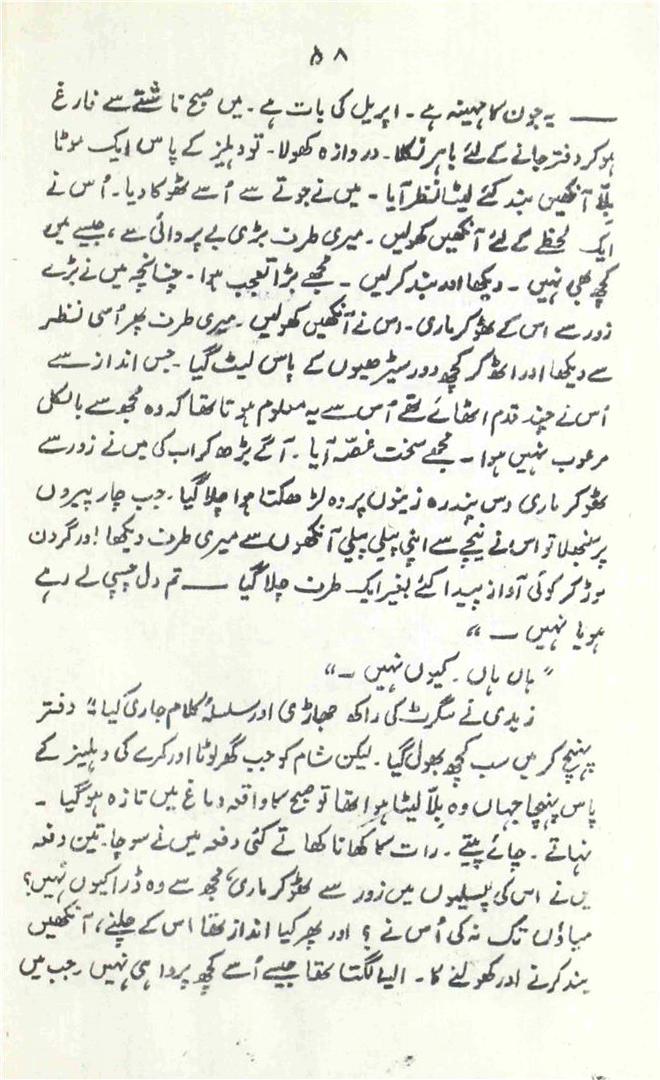 ۵۸
—— یہ جون کا مہینہ ہے۔ اپریل کی بات ہے۔ میں صبح ناشتے سے فارغ
ہو کر دفتر جانے کے لئے باہر نکلا۔ دروازہ کھولا۔ تو دہلیز کے پاس ایک موٹا
بلّا آنکھیں بند کئے لیٹا نظر آیا۔ میں نے جوتے سے اُسے ٹھوکا دیا۔ اُس نے
ایک لحظے کے لئے آنکھیں کھولیں۔ میری طرف بڑی بے پروائی سے، جیسے میں
کچھ بھی نہیں۔ دیکھا اور بند کر لیں۔ مجھے بڑا تعجب ہوا۔ چنانچہ میں نے بڑے
زور سے اس کے ٹھوکر ماری۔ اس نے آنکھیں کھولیں۔ میری طرف پھر اُسی نظر
سے دیکھا اور اٹھ کر کچھ دور سیڑھیوں کے پاس لیٹ گیا۔ جس انداز سے
اُس نے چند قدم اٹھائے تھے اُس سے یہ معلوم ہوتا تھا کہ وہ مجھ سے بالکل
مرعوب نہیں ہوا۔ مجھے سخت غصّہ آیا۔ آگے بڑھ کر اب کی میں نے زور سے
ٹھوکر ماری دس پندرہ زینوں پر وہ لڑھکتا ہوا چلا گیا۔ جب چار پیروں
پر سنبھلا تو اس نے نیچے سے اپنی پیلی پیلی آنکھوں سے میری طرف دیکھا اور گردن
موڑ کر کوئی آواز پیدا کئے بغیر ایک طرف چلا گیا —— تم دل چسپی لے رہے
ہو یا نہیں ——"
"ہاں ہاں۔ کیوں نہیں ——"
زیدی نے سگرٹ کی راکھ جھاڑی اور سلسلۂ کلام جاری کیا "دفتر
پہنچ کر میں سب کچھ بھول گیا۔ لیکن شام کو جب گھر لوٹا اور کمرے کی دہلیز کے
پاس پہنچا جہاں وہ بلّا لیٹا ہوا تھا تو صبح کا واقعہ دماغ میں تازہ ہو گیا۔
نہاتے۔ چائے پیتے۔ رات کا کھانا کھاتے کئی دفعہ میں نے سوچا۔ تین دفعہ
میں نے اس کی پسلیوں میں زور سے ٹھوکر ماری، مجھ سے وہ ڈرا کیوں نہیں؟
میاؤں تک نہ کی اُس نے؟ اور پھر کیا انداز تھا اس کے چلنے، آنکھیں
بند کرنے اور کھولنے کا۔ ایسا لگتا تھا جیسے اُسے کچھ پروا ہی نہیں۔ جب میں